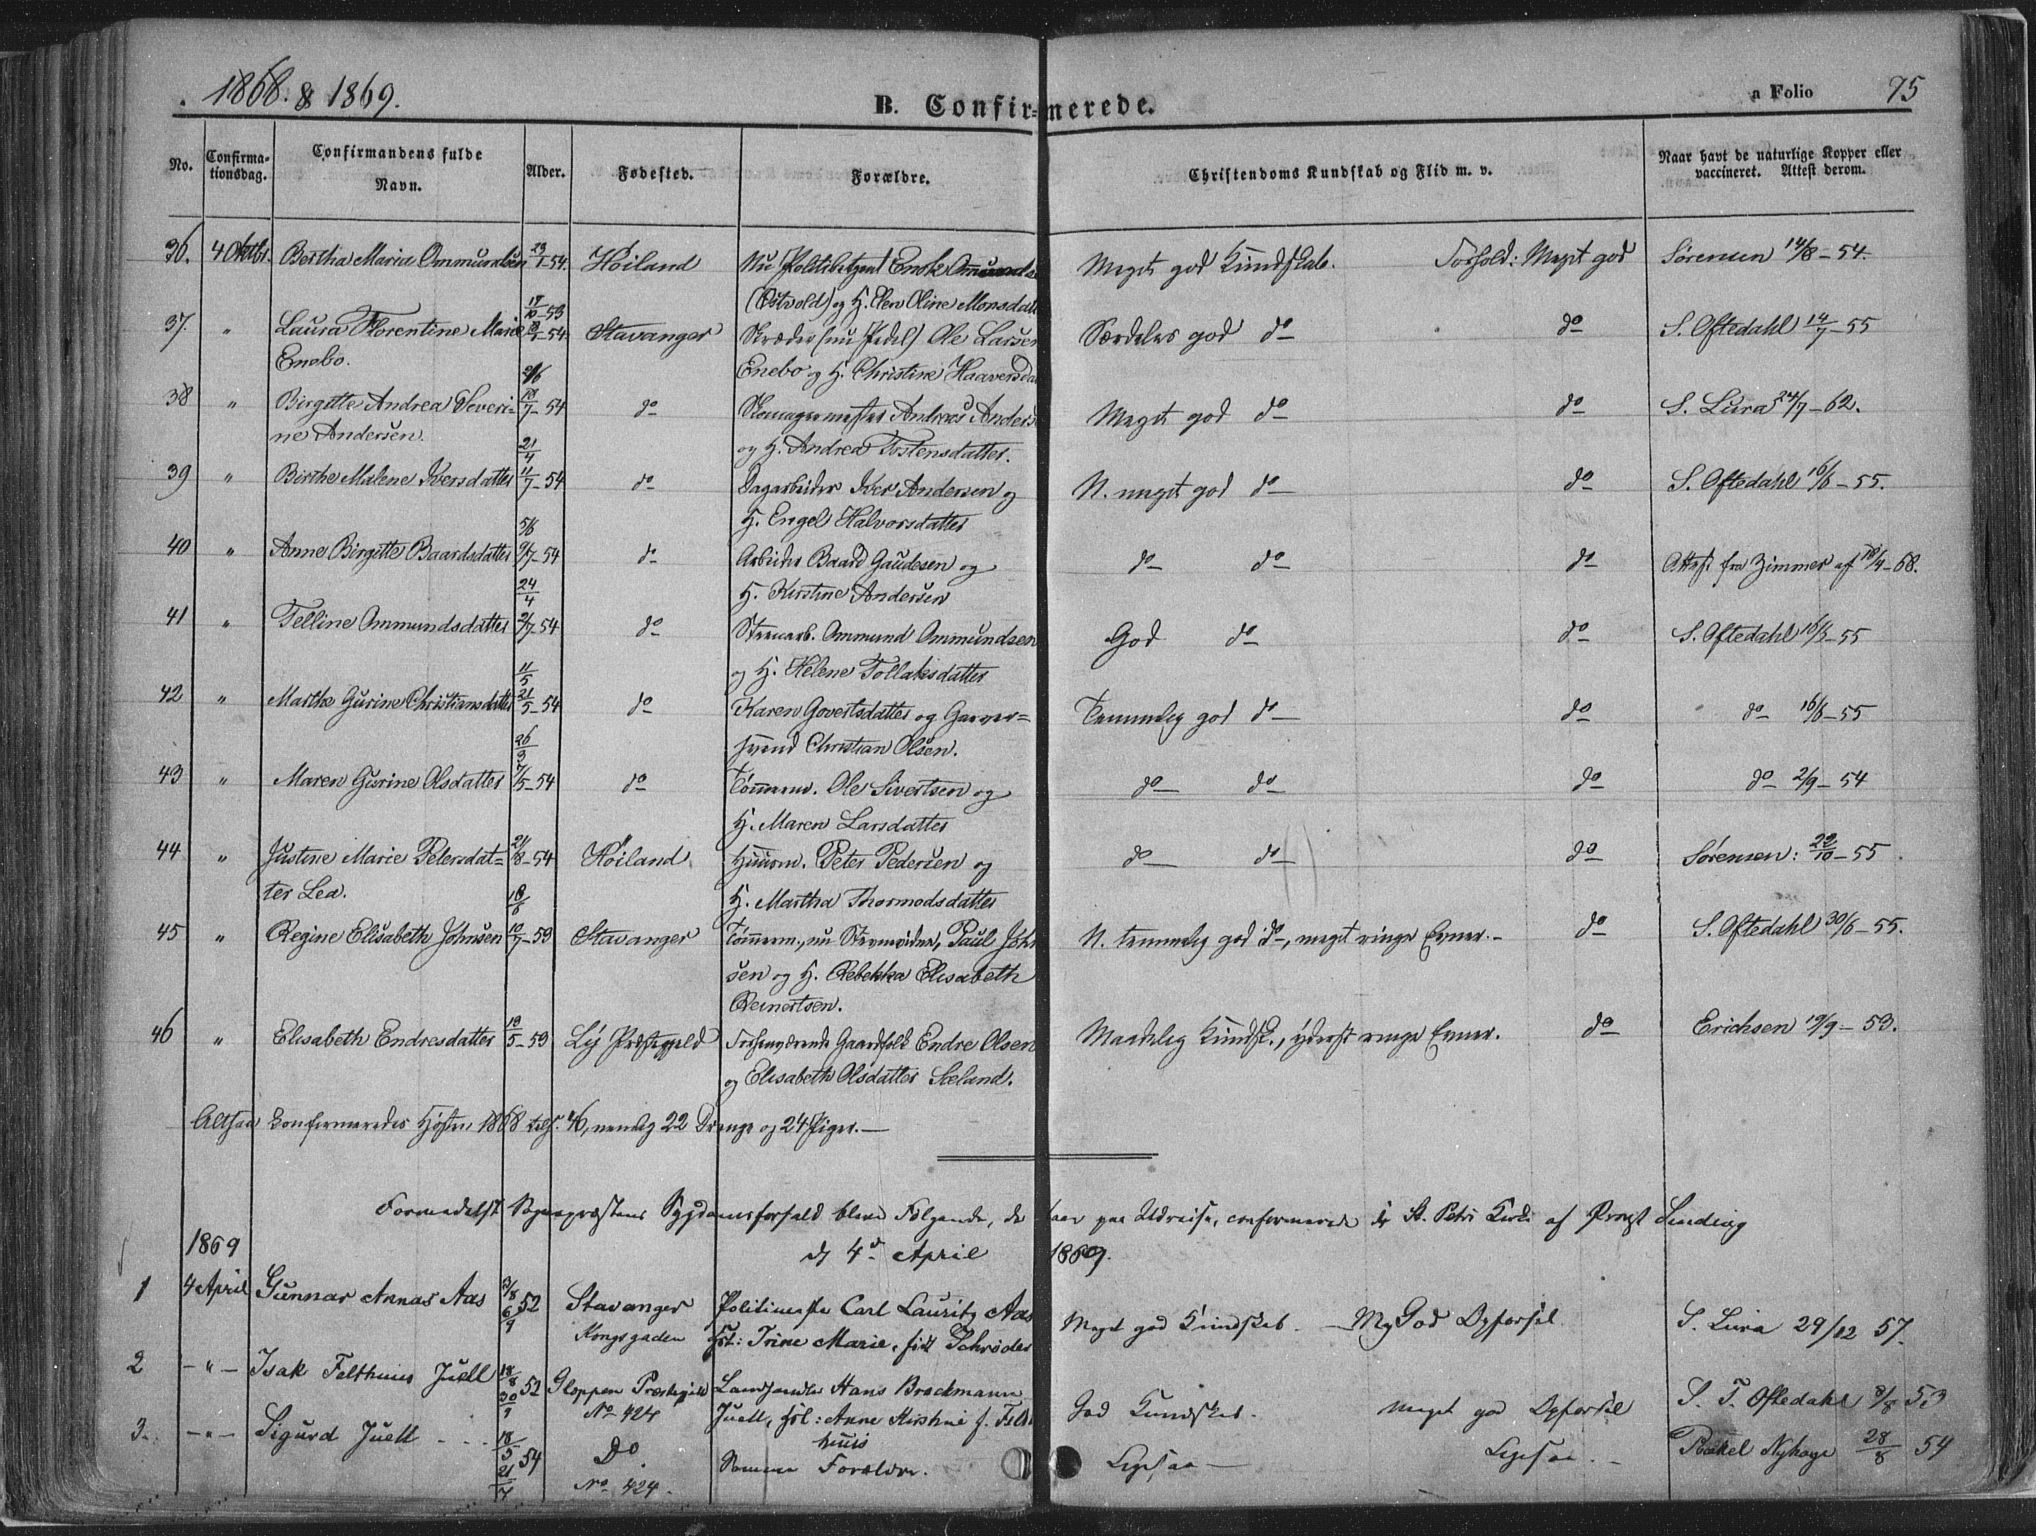 1868. & 1869.
B. Confirmerede.
a Folio 75
No.
Confirma-
tionsdag.
Confirmandens fulde
Navn.
Alder.
Fødested.
Forældre.
Christendoms Kundskab og Flid m. v.
Naar havt de naturlige Kopper eller
vaccineret. Attest derom.
36. 4 Oktbr. Bertha Maria Ommundsen 54. Høiland Nu Politibetjent Ommunds Meget god Kundskab. Forhold: Meget god Sørensen 14/8 - 54.
(Østvold) og H. Elen Oline Monsdatt
37. " Laura Florentine Marie 54. Stavanger Skræder (nu Pedel) Ole Larsen Særdeles god do do S. Oftedahl 14/7 - 55
Enebo. Enebo og H. Christine Haaversda
38 " Birgitte Andrea Severi- 54 do Skomagermester Andreas Anders Meget god do do S. Lura 24/7 - 62.
ne Andersen. og H. Andrea Tostensdatter.
39 " Birthe Malene Iversdatter 21/4 11/7 - 54 do Dagarbeider Iver Andersen og N. meget god do do S. Oftedahl 16/6 - 55.
H. Engel Halvorsdatter
40 " Anne Birgitte Baardsdatter 9/7 - 54 do Arbeider Baard Gaudesen og do do do Attest fra Zimmer af - 68.
H. Kirstine Andersen
41 " Telline Ommundsdatter 24/4 54 do Ommund Ommundsen God do do S. Oftedahl - 55
og H. Helene Tollaksdatter
42 " Marthe Gurine Christiansdatter 11/5 21/5 - 54 do Karen Govertsdatter og Garver- Temmelig god do do do 16/6 - 55
svend Christian Olsen.
43 " Maren Gurine Olsdatter 26/3 7/5 - 54 do Tømmerm. Ole Sivertsen og do do do do 2/9 - 54
H. Maren Larsdatter
44 " Justine Marie Petersdat- 54 Høiland Huusm. Peter Pedersen og do do do Sørensen: 22/10 - 55.
ter Lea. H. Martha Thormodsdatter
45 " Regine Elisabeth Johnsen 10/7 - 53 Stavanger Tømmerm., nu Paul John N. temmelig god do, meget ringe Evner. - do S. Oftedahl 30/6 - 55.
sen og H. Rebekka Elisabeth
Reinertsen.
46 " Elisabeth Endresdatter 19/5 - 53 Lÿe Præstegjeld Forhenværende Gaardfolk Endre Olsen Maadelig Kundsk., yderst ringe Evner. do Erichsen 19/9 - 53.
og Elisabeth Olsdatter Sæland.
Altsaa konfirmeredes Høsten 1868 tils. 46, nemlig 22 Drenge og 24 Piger. -
Formedelst Sognepræstens Sygdomsforfald bleve Følgende, der staar paa Udreise, confirmerede i St. Petri Kirke af Provst Sinding
1869 d. 4d April 1869.
1 4 April Gunnar Annas Aas 3/8 6/9 52 Stavanger Politimester Carl Lauritz Aas Meget god Kundskab. - Mg God Opførsel. S. Lura 29/12 57.
Kongsgaden Hst: Trine Marie, født Schrøder
2 - " - Isak Felthuus Juell 18/8 52 Gloppen Præstegjeld Landhandler Hans Brockmann God Kundskab. meget god Opførsel S. T. Oftedahl 8/8 53
No 424 Juell, Hst: Anne Kirstine f. Felt
huus
3. - " - Sigurd Juell 18/5 21/7 54 Do Samme Forældre. Ligesaa - Ligesaa. - Rakel Nyhage 28/8 54
No 424.